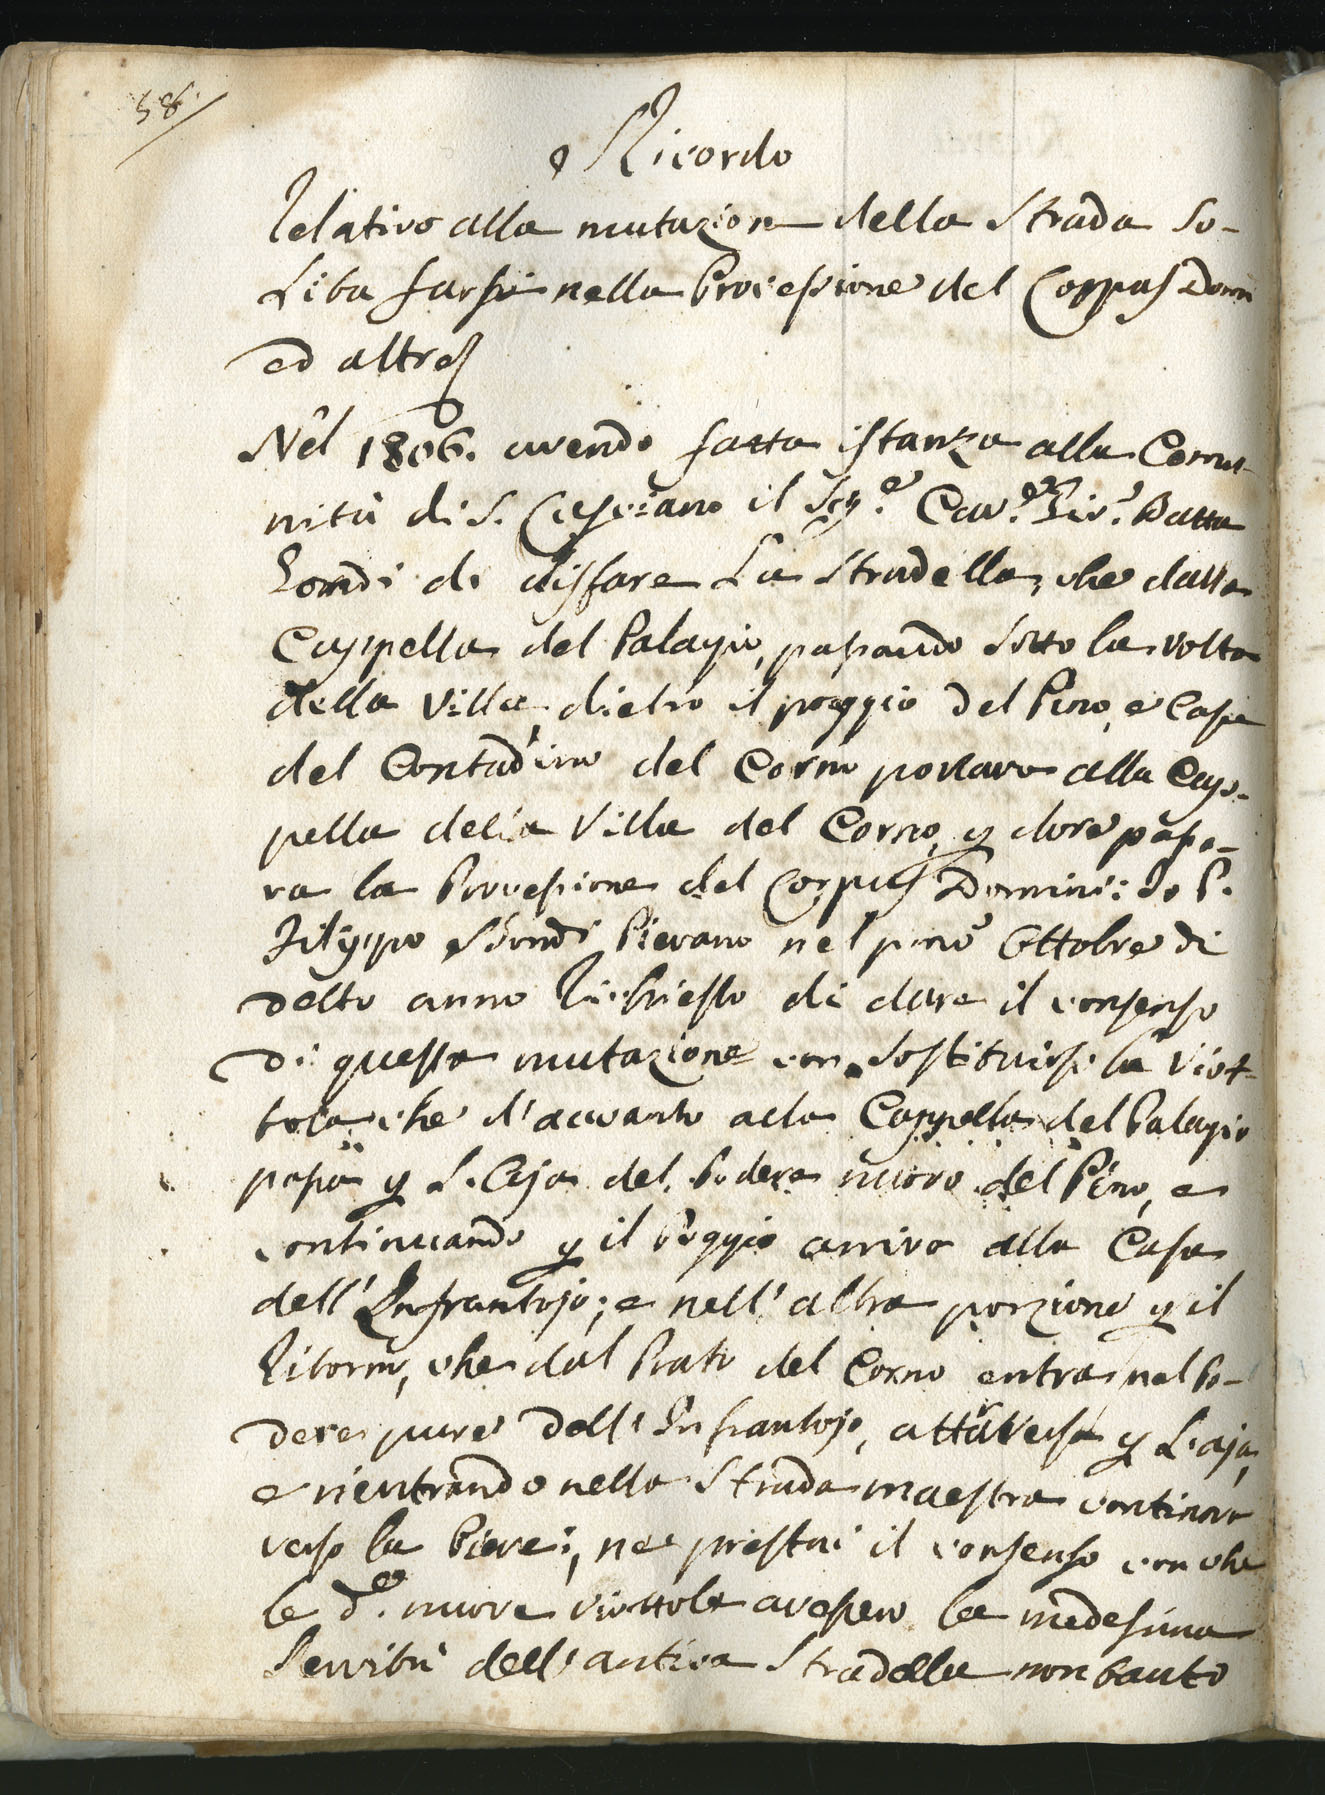 58.
Ricordo
Relativo alla mutazione della Strada So-
lita farsi nella Processione del Corpus Dom
ed altre
Nel 1806. avendo fatta istanza alla Comu-
nità di S. Casciano il Sig.e Cav.e Gio. Batta
di disfare la Stradella, che dalla
Cappella del Palagio, passando sotto la volta
della Villa, dietro il poggio del Pino, e Case
del Contadino del Corno portava alla Cap-
pella della Villa del Corno, p dove passa-
va la Processione del Corpus Domini: Io P.
Filippo Pievano nel pmo Ottobre di
detto anno Richiesto di dare il consenso
di questa mutazione con sostituirsi la Viot-
tola che d'accanto alla Cappella del Palagio
passa p l'Aja del Podere nuovo del Pino, e
continuando p il Poggio arriva alla Casa
dell'Infrantojo; e nell'altra porzione p il
Ritorno, che dal Prato del Corno entra nel Po-
dere pure dell'Infrantojo, attraversa p l'aja,
e rientrando nella Strada maestra continova
verso la Pieve; ne prestai il consenso con che
le d.e nuove viottole avessero la medesima
Servitù dell'antica Stradella non tanto